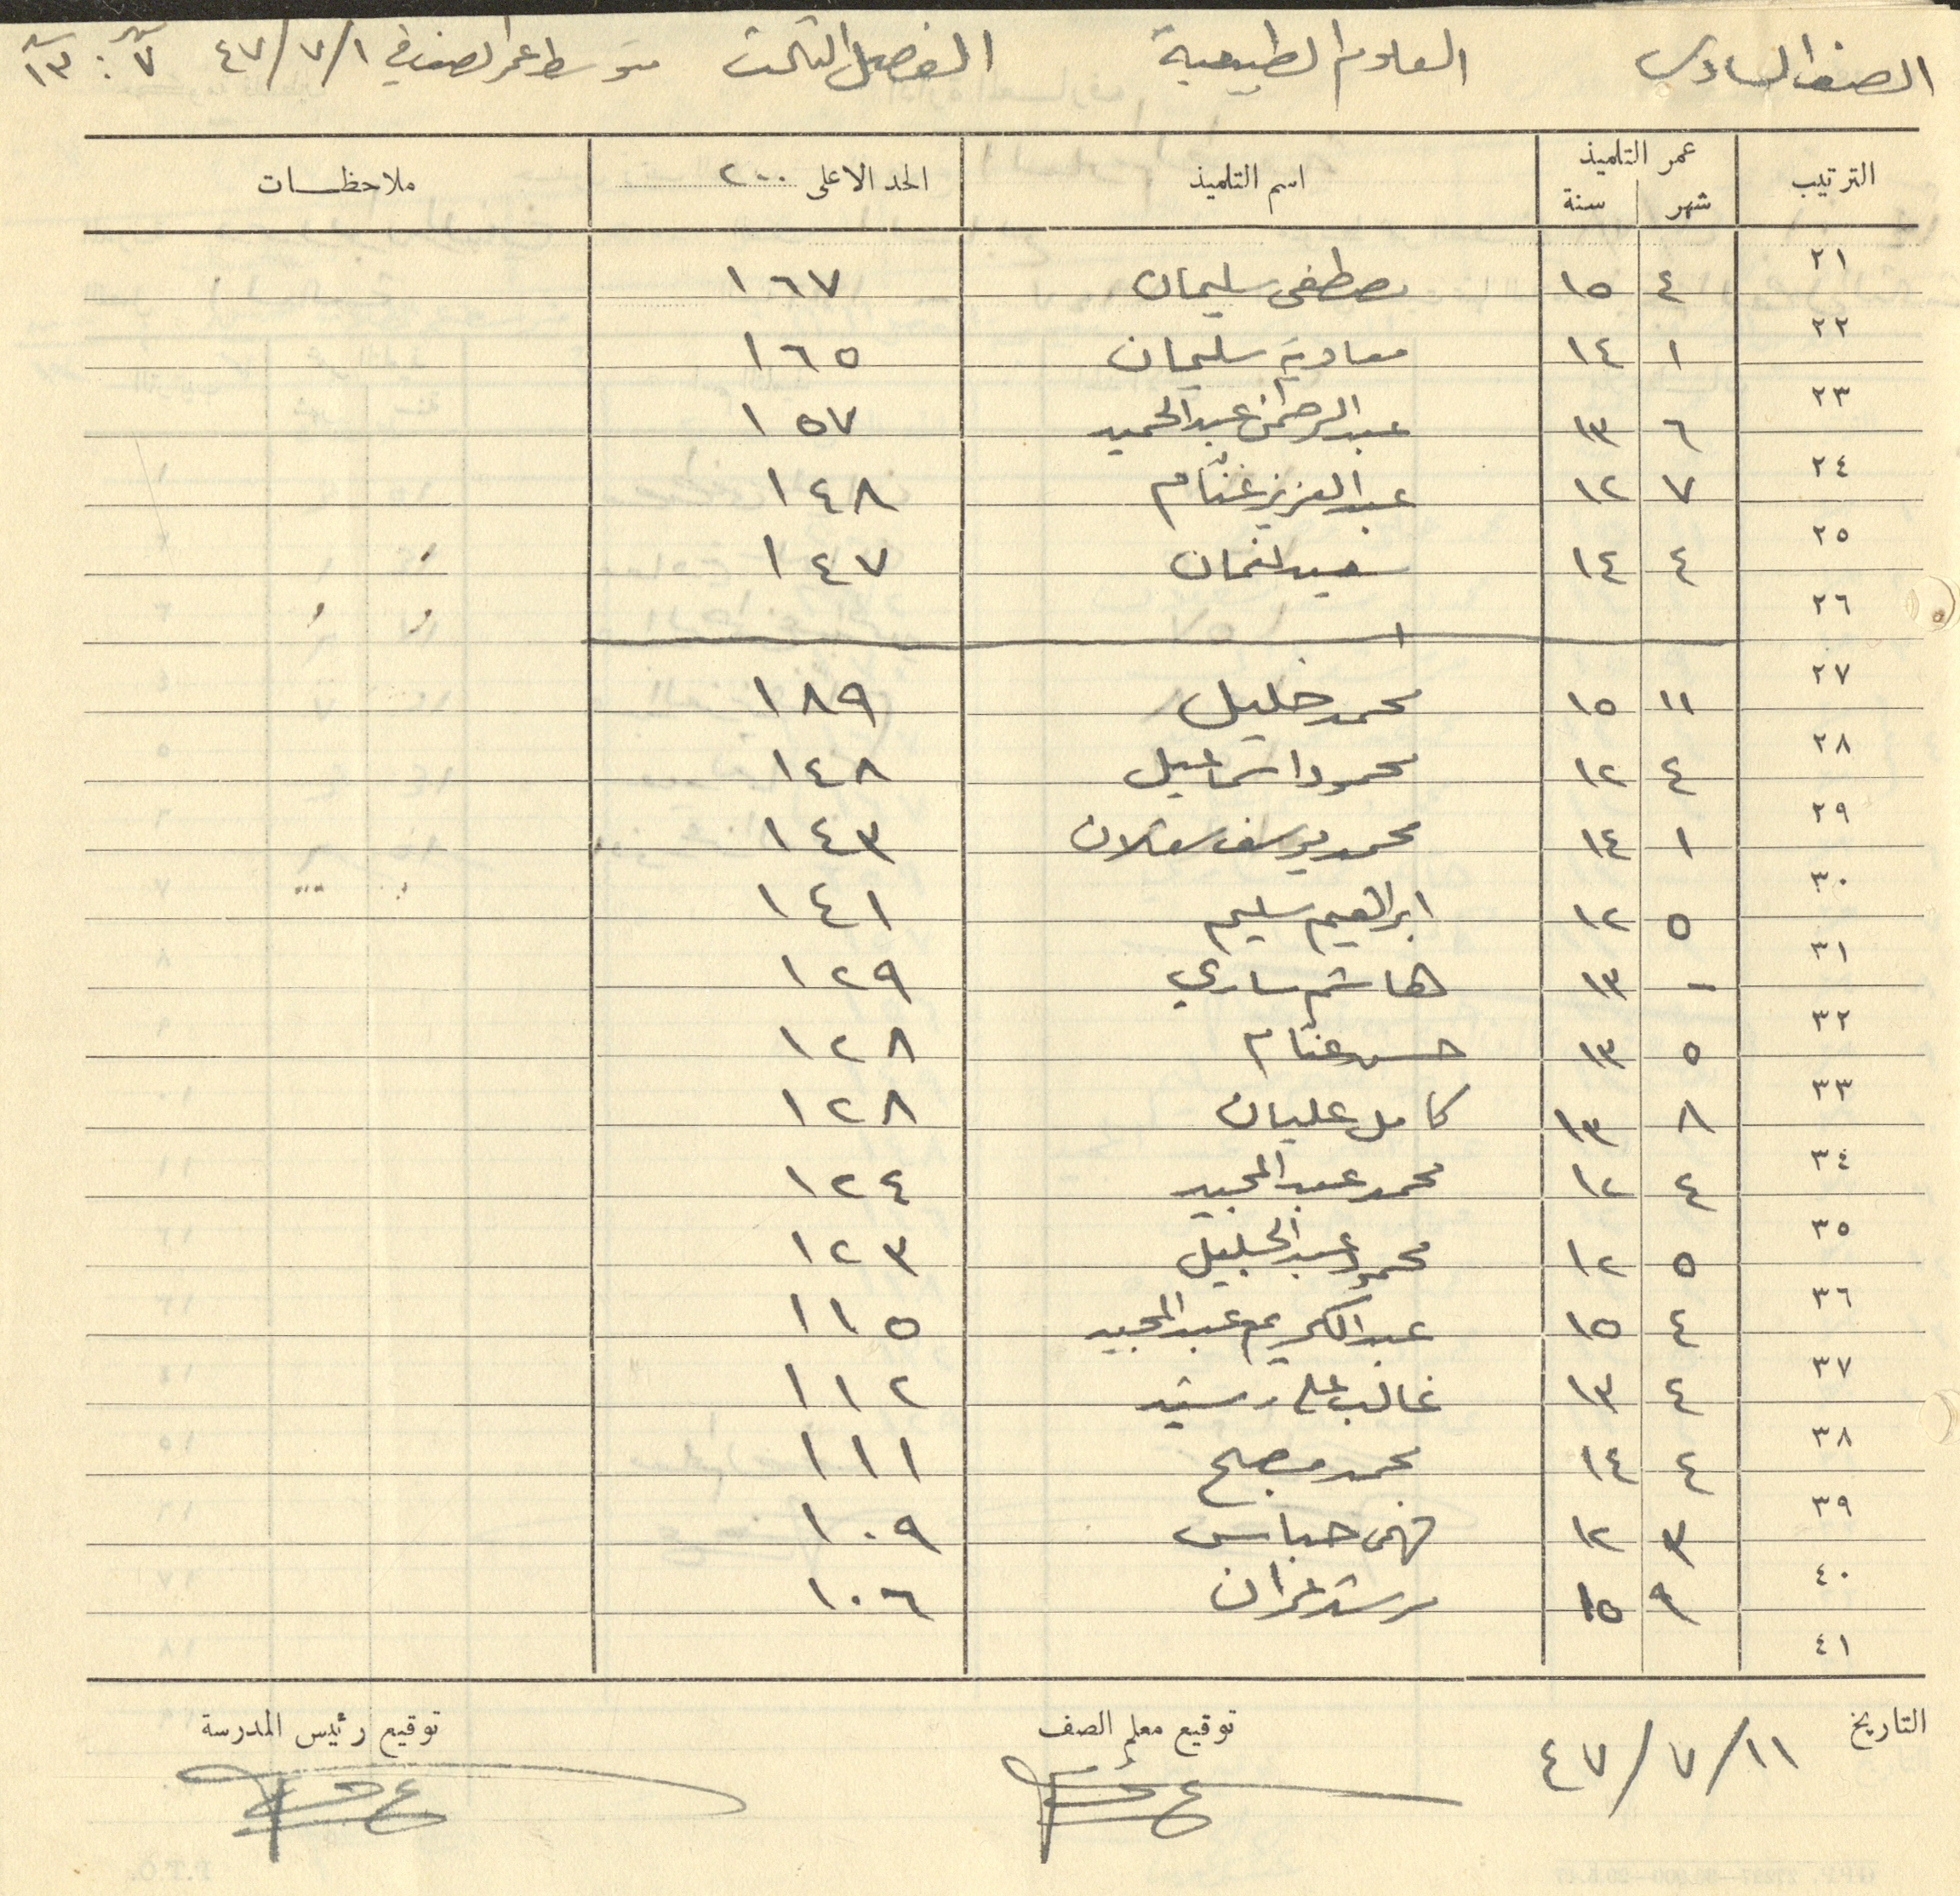 الصف السادس العلوم الطبيعية الفصل الثالث متوسط عمر الصف في ٤٧/٧/١ ٧ : ١٣
الترتيب عمر التلميذ اسم التلميذ الحد الاعلى ٢٠٠ ملاحظات
شهر سنة
٢١ ٤ ١٥ مصطفى سليمان ١٦٧
٢٢ ١ ١٤ معاوية سليمان ١٦٥
٢٣ ٦ ١٣ عبد الرحمن عبد الحميد ١٥٧
٢٤ ٧ ١٢ عبد العزيز غنّام ١٤٨
٢٥ ٤ ١٤ سعيد لقمان ١٤٧
٢٦
٢٧ ١١ ١٥ محمد خليل ١٨٩
٢٨ ٤ ١٢ محمود اسماعيل ١٤٨
٢٩ ١ ١٤ محمد يوسف ١٤٣
٣٠ ٥ ١٢ ابراهيم سليم ١٤١
٣١ - ١٣ هاشم ساري ١٢٩
٣٢ ٥ ١٣ حسن غنام ١٢٨
٣٣ ٨ ١٣ كامل عليان ١٢٨
٣٤ ٤ ١٢ محمد عبد المجيد ١٢٤
٣٥ ٥ ١٢ محمود عبد الجليل ١٢٣
٣٦ ٤ ١٥ عبد الكريم عبد المجيد ١١٥
٣٧ ٤ ١٣ غالب علي رشيد ١١٢
٣٨ ٤ ١٤ محمد مصلح ١١١
٣٩ ٣ ١٢ فهمي ١٠٩
٤٠ ٩ ١٥ مرشد ١٠٦
٤١
التاريخ ٤٧/٧/١١ توقيع معلم الصف توقيع رئيس المدرسة